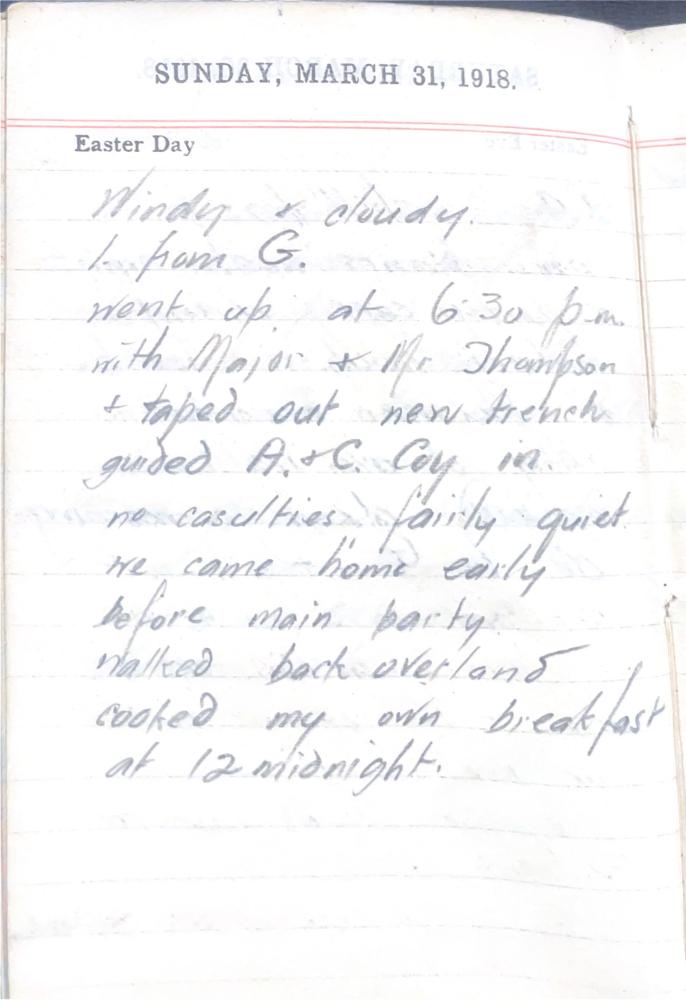 SUNDAY, MARCH 31, 1918.
Easter Day
Windy & cloudy.
L. from G.
went up at 6.30 p.m.
with Major & Mr Thompson
& taped out new trench
guided A. & C. Coy in.
no casulties fairly quiet.
we came home early
before main party
walked back overland
cooked my own breakfast
at 12 midnight.